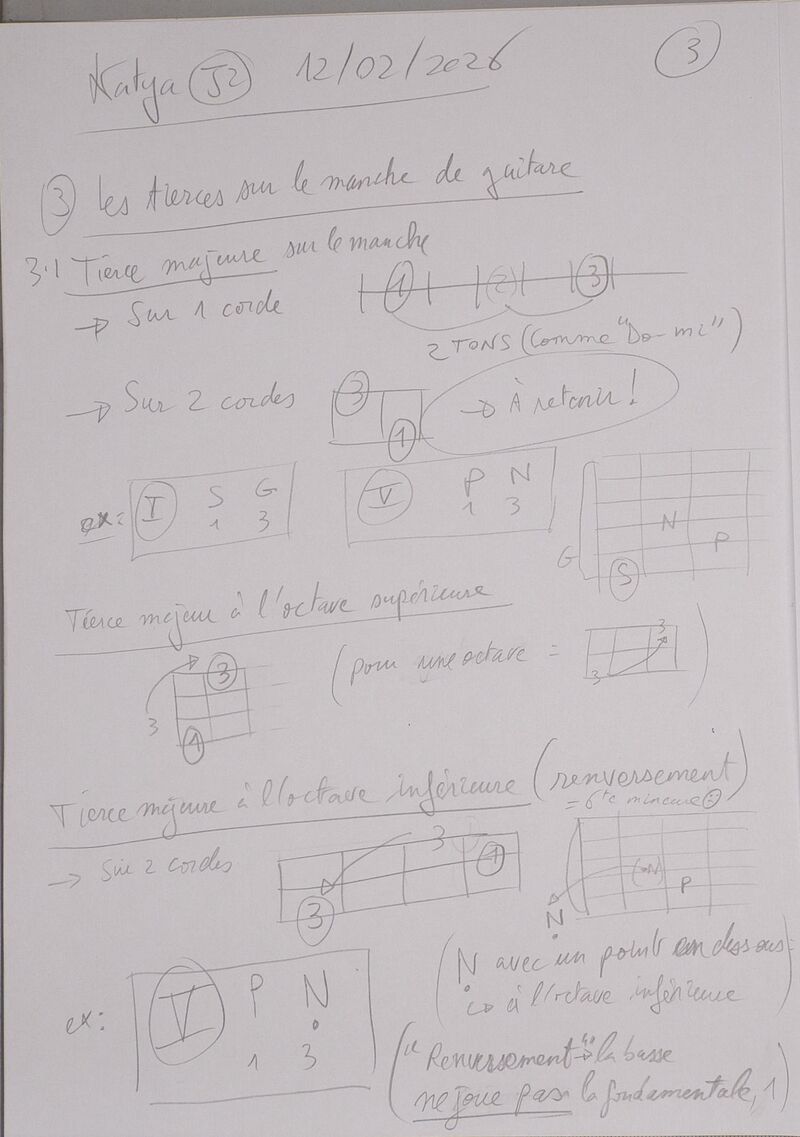 Natya J2 12/02/2026 3
3 Les tierces sur le manche de guitare
3.1 Tierce majeure sur le manche
→ Sur 1 corde 1 (2) 3
2 TONS (Comme "Do - mi")
→ Sur 2 cordes 3 1 → À retenir !
ex: I S G V P N
1 3 1 3
N
P
G
S
Tierce majeur à l'octave supérieure
(pour une octave = 3 3)
3 3
1
Tierce majeure à l'octave inférieure (renversement)
= 6te mineure
→ Sur 2 cordes 3 1 3
N P
N
ex: V P N
1 3
(N avec un point en dessous =
à l'octave inférieure)
("Renversement" → la basse
ne joue pas la fondamentale, 1)